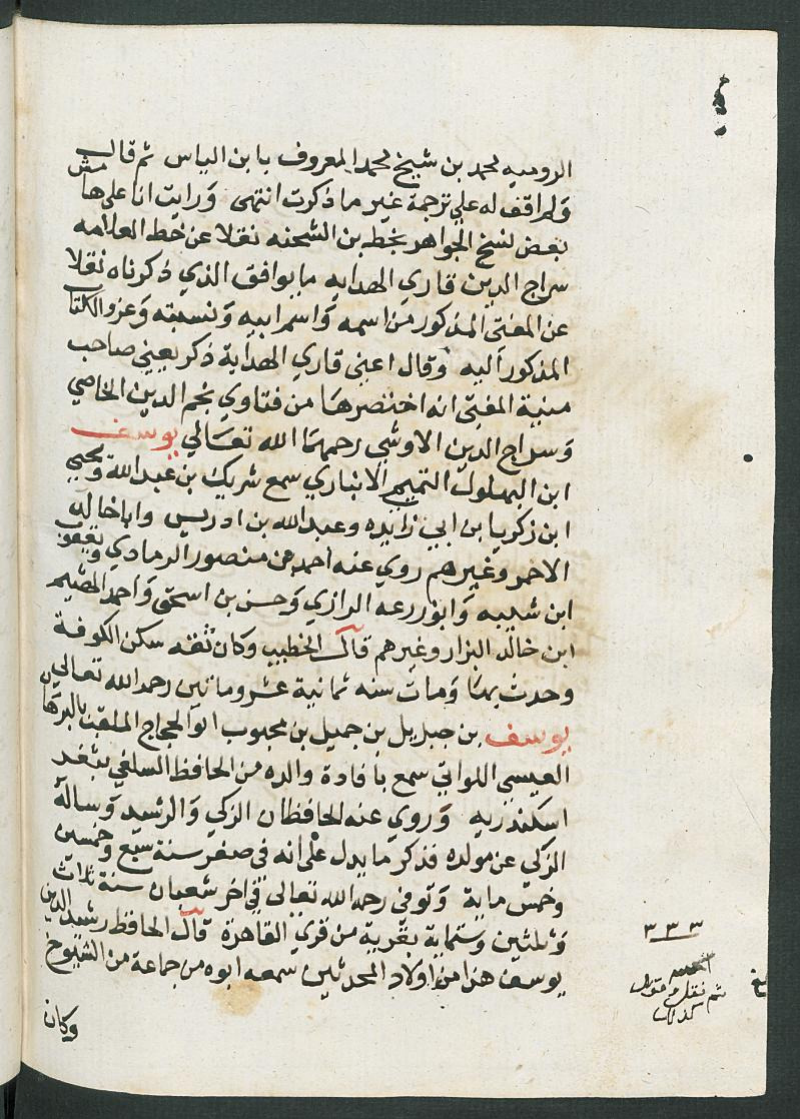 الروميه لمحمد بن شيخ محمد المعروف بابن الياس ثم قال
ولم اقف له علي ترجمة غير ما ذكرت انتهى ورايت انا علي هامش
بعض نسخ الجواهر بخط بن الشحنه نقلا عن خط العلامه
سراج الدين قاري الهدايه ما يوافق الذي ذكرناه نقلا
عن المغني المذكور من اسمه واسم ابيه ونسبته وعزو الكتاب
المذكور اليه وقال اعني قاري الهداية ذكر يعني صاحب
منية المفتي انه اختصرها من فتاوي نجم الدين الخاصي
وسراج الدين الاوشي رحمهما الله تعالي يوسف
ابن البهلول التميمي الانباري سمع شريك بن عبد الله ويحيي
ابن زكريا بن ابي زايده وعبد الله بن ادريس وابا خالد
الاحمر وغيرهم روي عنه احمد بن منصور الرمادي ويعقوب
ابن شيبه وابو زرعه الرازي وحسن بن اسحق واحمد الهيثم
ابن خالد البزار وغيرهم قال الخطيب وكان ثقه سكن الكوفة
وحدث بها ومات سنه ثمانية عشر وماتين رحمه الله تعالي
يوسف بن جبريل بن جميل بن محبوب ابو الحجاج الملقب بالبرهان
العيسي اللواتي سمع بافادة والده من الحافظ السلفي بثغر
اسكندريه وروي عنه الحافظان الزكي والرشيد وساله
الزكي عن مولده فذكر ما يدل علي انه في صفر سنة سبع وخمسين
وخمس ماية وتوفي رحمه الله تعالي في اخر شعبان سنة ثلاث
وثلثين وستماية بقرية من قري القاهرة قال الحافظ رشيد الدين
يوسف هذا من اولاد المحدثين سمعه ابوه من جماعة من الشيوخ
وكان
٣٣٣
ثم نقل